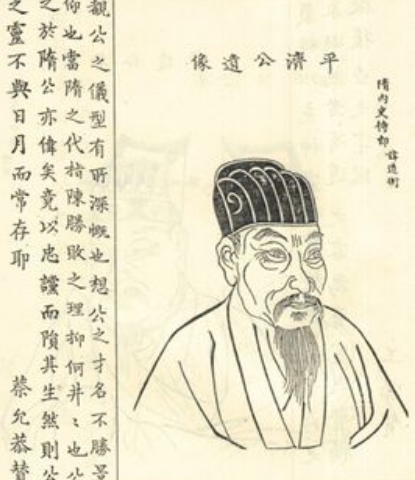 隋內史侍郎 諱道衡
平濟公遺像
觀公之儀型有所深慨也想公之才名不勝景
仰也當隋之代指陳勝敗之理抑何井〻也公
之於隋公亦偉矣竟以忠讜而隕其生然則公
之靈不與日月而常存耶 蔡允恭贊